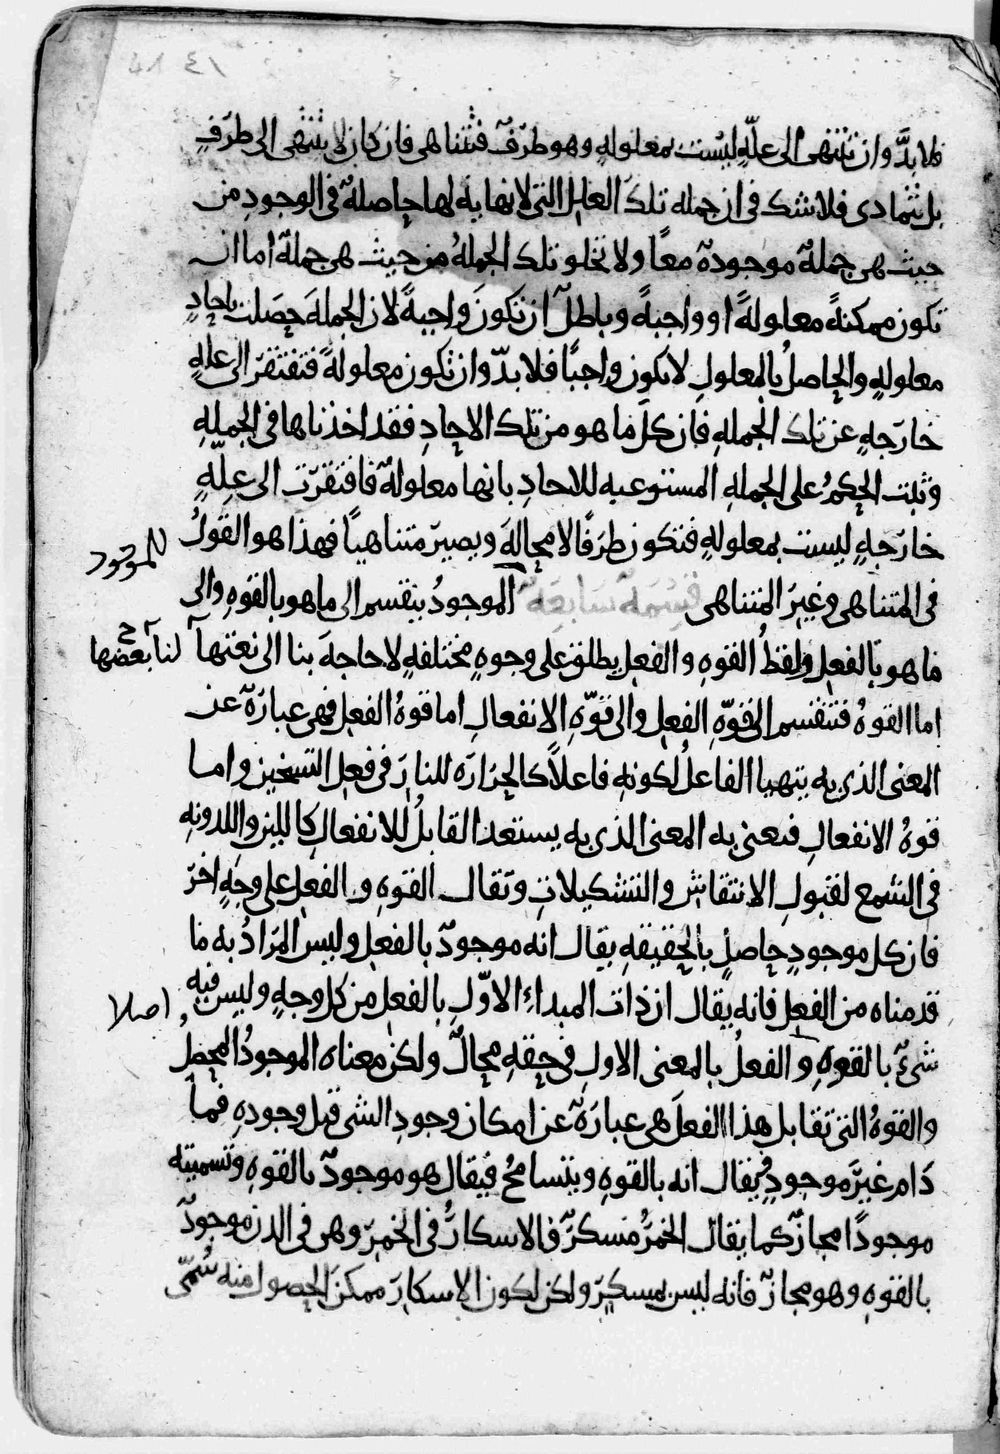 ٤١ ٤٨
فلابدَّ وان تنتهى الى علّةٍ ليست بمعلولهٍ وهو طرَفٌ فتتناهى فان كان لا ينتهى الى طرَفٍ
بل يتمادى فلا شك فى ان جمله تلك العلل التى لا نهايه لها حاصلهٌ فى الوجودِ من
حيث هى جملهٌ موجودةٌ معاً ولا تخلو تلك الجملهُ من حيث هى جملهٌ اما ان
تكون ممكنهً معلولهً او واجبهً وباطلٌ ان تكونَ واجبهً لان الجملهَ حصَلت باحادٍ
معلولهٍ والحاصلُ بالمعلولِ لا يكون واجبًا فلابدّ وان تكون معلولهً فتفتقرُ الى علهٍ
خارَجهٍ عن تلك الجملهِ فان كلَّ ما هو من تلك الاحادِ فقد اخذناها فى الجملهِ
وثبت الحكمُ على الجملهِ المستوعبه للاحادِ بانها معلولهٌ فافتقرَت الى علّهٍ
خارَجهٍ ليست بمعلولهٍ فتكون طرَفًا لا محالهَ ويصيرَ متناهياً فهذا هو القولُ
فى المتناهى وغيرَ المتناهى قسْمَهٌ سَابعَهٌ الموجودُ ينقسم الى ما هو بالقوهِ والى
للموجود
ما هو بالفعلِ ولفظُ القوهِ والفعلِ يطلق على وجوهٍ مختلفهٍ لا حاجهَ بنا الى نعتها
لنا بعضها
اما القوهُ فتنقسم الى قوّهِ الفعلِ والى قوّهِ الانفعالِ اما قوهُ الفعلِ فهى عبارَهٌ عن
المعنى الذى به يتهيا الفاعلُ لكونه فاعلاً كالحرَارَه للنارَ فى فعلِ التسخين واما
قوهُ الانفعالِ فنعنى به المعنى الذى به يستعد القابلُ للانفعالِ كاللين واللدونهِ
فى الشمع لقبولِ الانتقاش والتشكيلاتِ وتقال القوهِ والفعلِ على وجهٍ اخرَ
فان كل موجودٍ حاصلٍ بالحقيقهِ يقال انه موجودٌ بالفعلِ وليس المرَادُ به ما
قدمناه من الفعلِ فانه يقال ان ذات المبداءِ الاوّلِ بالفعلِ من كل وجهٍ وليس فيه
اصلا
شىءٌ بالقوهِ والفعلُ بالمعنى الاول فى حقهِ محالٌ ولكن معناه الموجودُ المحصلُ
والقوهُ التى تقابل هذا الفعلَ هى عبارَهٌ عن امكان وجودِ الشى قبل وجودهِ فما
دَام غيرَ موجودٍ فيقال انه بالقوهِ ويتسامحُ فيقال هو موجودٌ بالقوهِ وتسميته
موجودًا مجازٌ كما يقال الخمرُ مسكرٌ فالاسكارُ فى الخمرَ وهى فى الدن موجودٌ
بالقوهِ وهو مجازٌ فانه ليس بمسكرٍ ولكن لكون الاسكارَ ممكنَ الحصول منه سُمّى